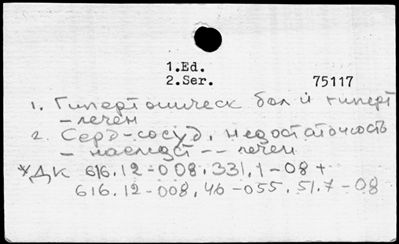 1.Ed.
2.Ser. 75117
1. Гипертоническ бол и гиперт
- лечен
2. Серд-сосуд. недостаточность
- наследст -- лечен
*ДК 616.12-008.331.1-08+
616.12-008.46-055.51.7-08